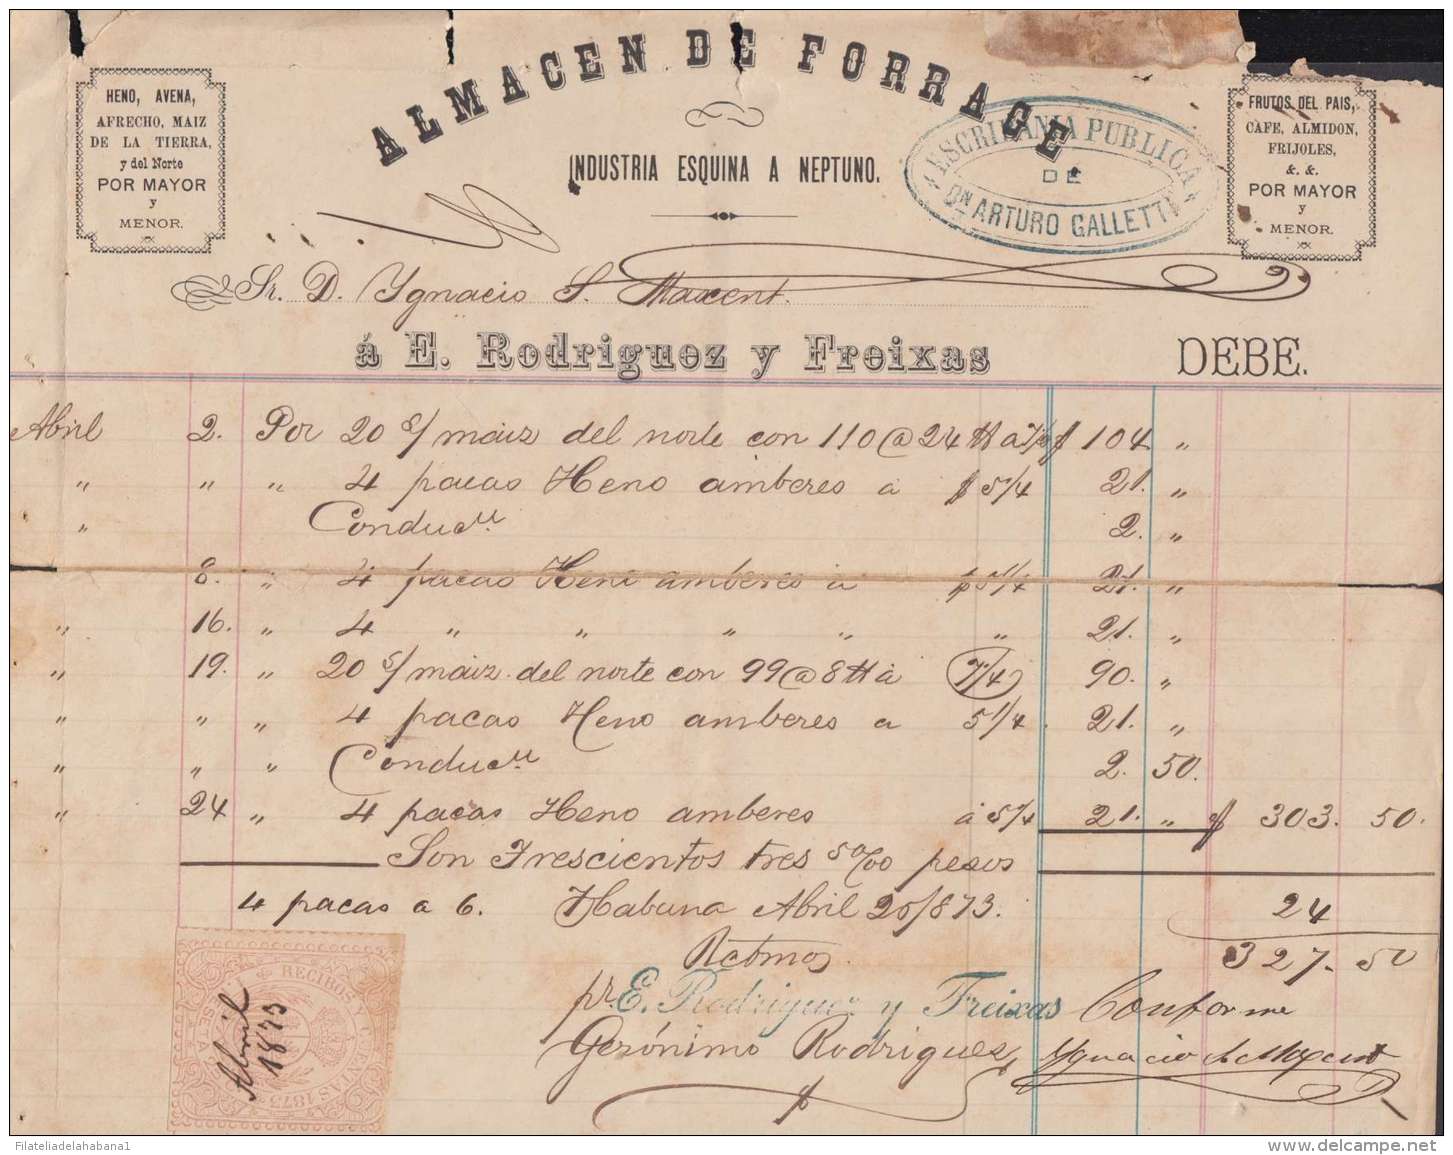 ALMACEN DE FORRAGE
HENO, AVENA,
AFRECHO, MAIZ
DE LA TIERRA,
y del Norte
POR MAYOR
y
MENOR.
INDUSTRIA ESQUINA A NEPTUNO.
ESCRIBANIA PUBLICA
DE
DN ARTURO GALLETTI
FRUTOS DEL PAIS,
CAFE, ALMIDON,
FRIJOLES,
&. &.
POR MAYOR
y
MENOR.
Sr. D. Ygnacio S. Maxent.
á E. Rodriguez y Freixas DEBE.
Abril 2. Por 20 s/ maiz del norte con 110@24 tt a $ 104 "
" " " 4 pacas Heno amberes a $ 5 1/4 21. "
" Conduc.n 2. "
8. " 4 pacas Heno amberes a $ 5 1/4 21. "
" 16. " 4 " " " " " 21. "
" 19. " 20 s/ maiz del norte con 99@8 tt a 7/4 90. "
" " " 4 pacas Heno amberes a 5 1/4 21. "
" " " Conduc.n 2. 50.
" 24 " 4 pacas Heno amberes á 5 1/4 21. " $ 303. 50.
Son Trescientos tres 50/00 pesos
4 pacas a 6. Habana Abril 25/873. 24
Rcbmos. 327. 50
pr. E. Rodriguez y Freixas Conforme
Gerónimo Rodriguez Ygnacio S. Maxent
RECIBOS Y CUENTAS 1873
Abril
1873
Filateliadelahabana1
www.delcampe.net